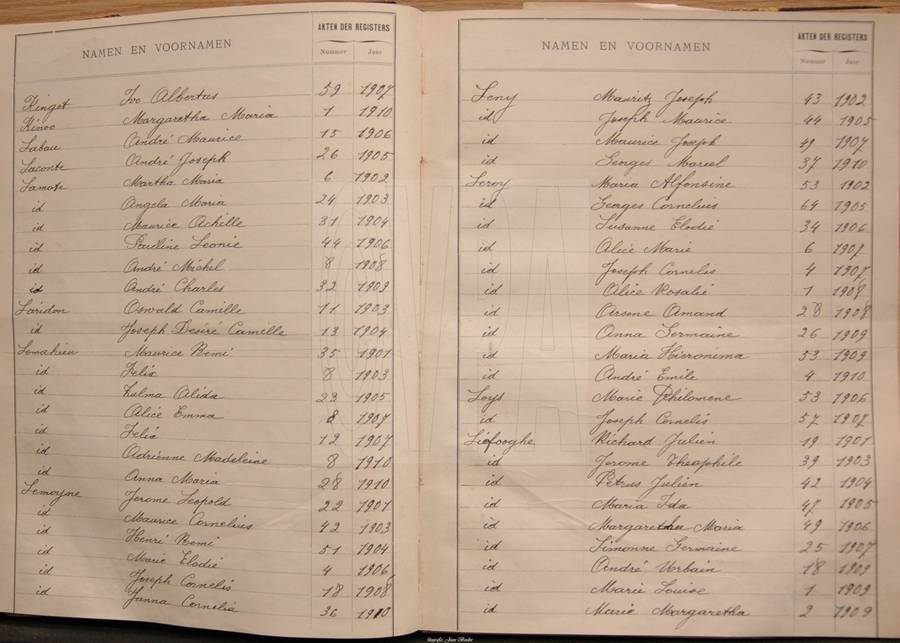 NAMEN EN VOORNAMEN AKTEN DER REGISTERS
Nummer Jaar
Kingst Ivo Albertus 59 1907
Kinoo Margaretha Maria 1 1910
Labau André Maurice 15 1906
Laconte André Joseph 26 1905
Lamote Martha Maria 6 1902
id Angela Maria 24 1903
id Maurice Achille 31 1904
id Pauline Leonie 44 1906
id André Michel 8 1908
id André Charles 32 1909
Laridon Oswald Camille 11 1903
id Joseph Désiré Camille 13 1904
Lemahieu Maurice Remi 35 1901
id Felix 8 1903
id Zulma Alida 23 1905
id Alice Emma 8 1907
id Felix 12 1907
id Adrienne Madeleine 8 1910
id Anna Maria 28 1910
Lemoyne Jerome Leopold 22 1901
id Maurice Cornelius 42 1903
id Henri Remi 51 1904
id Marie Elodie 4 1906
id Joseph Cornelis 18 1908
id Janna Cornelie 36 1910
NAMEN EN VOORNAMEN AKTEN DER REGISTERS
Nummer Jaar
Leny Mauritz Joseph 43 1902
id Joseph Maurice 44 1905
id Maurice Joseph 49 1907
id Georges Marcel 37 1910
Leroy Maria Alfonsine 53 1902
id Georges Cornelius 64 1905
id Susanne Elodie 34 1906
id Alice Marie 6 1907
id Joseph Cornelis 4 1907
id Alice Rosalie 1 1908
id Arsene Amand 28 1908
id Anna Germaine 26 1909
id Maria Hieronima 53 1909
id André Emile 4 1910
Loys Marie Philomene 53 1906
id Joseph Cornelis 57 1907
Liefooghe Richard Julien 19 1901
id Jerome Theophile 39 1903
id Petrus Julien 42 1904
id Maria Ida 47 1905
id Margaretha Maria 49 1906
id Simonne Germaine 25 1907
id André Urbain 18 1909
id Marie Louise 1 1909
id Marie Margaretha 2 1909